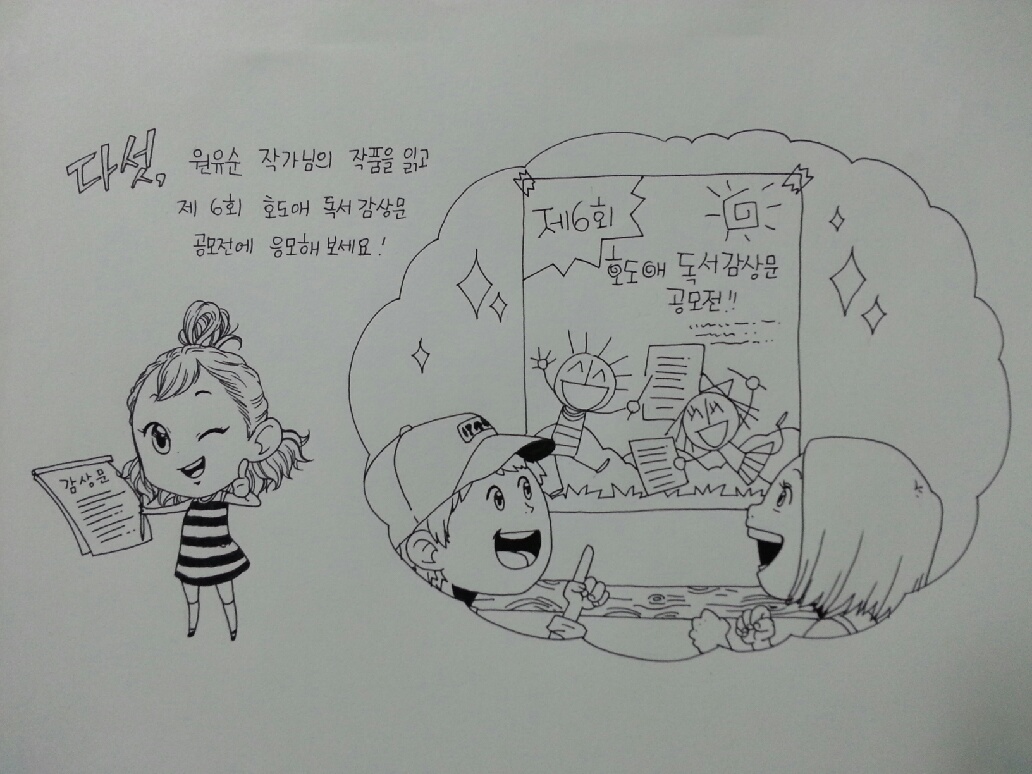 다섯, 원유순 작가님의 작품을 읽고
제 6회 호도애 독서감상문
공모전에 응모해보세요!
감상문
제6회
호도애 독서감상문
공모전!!